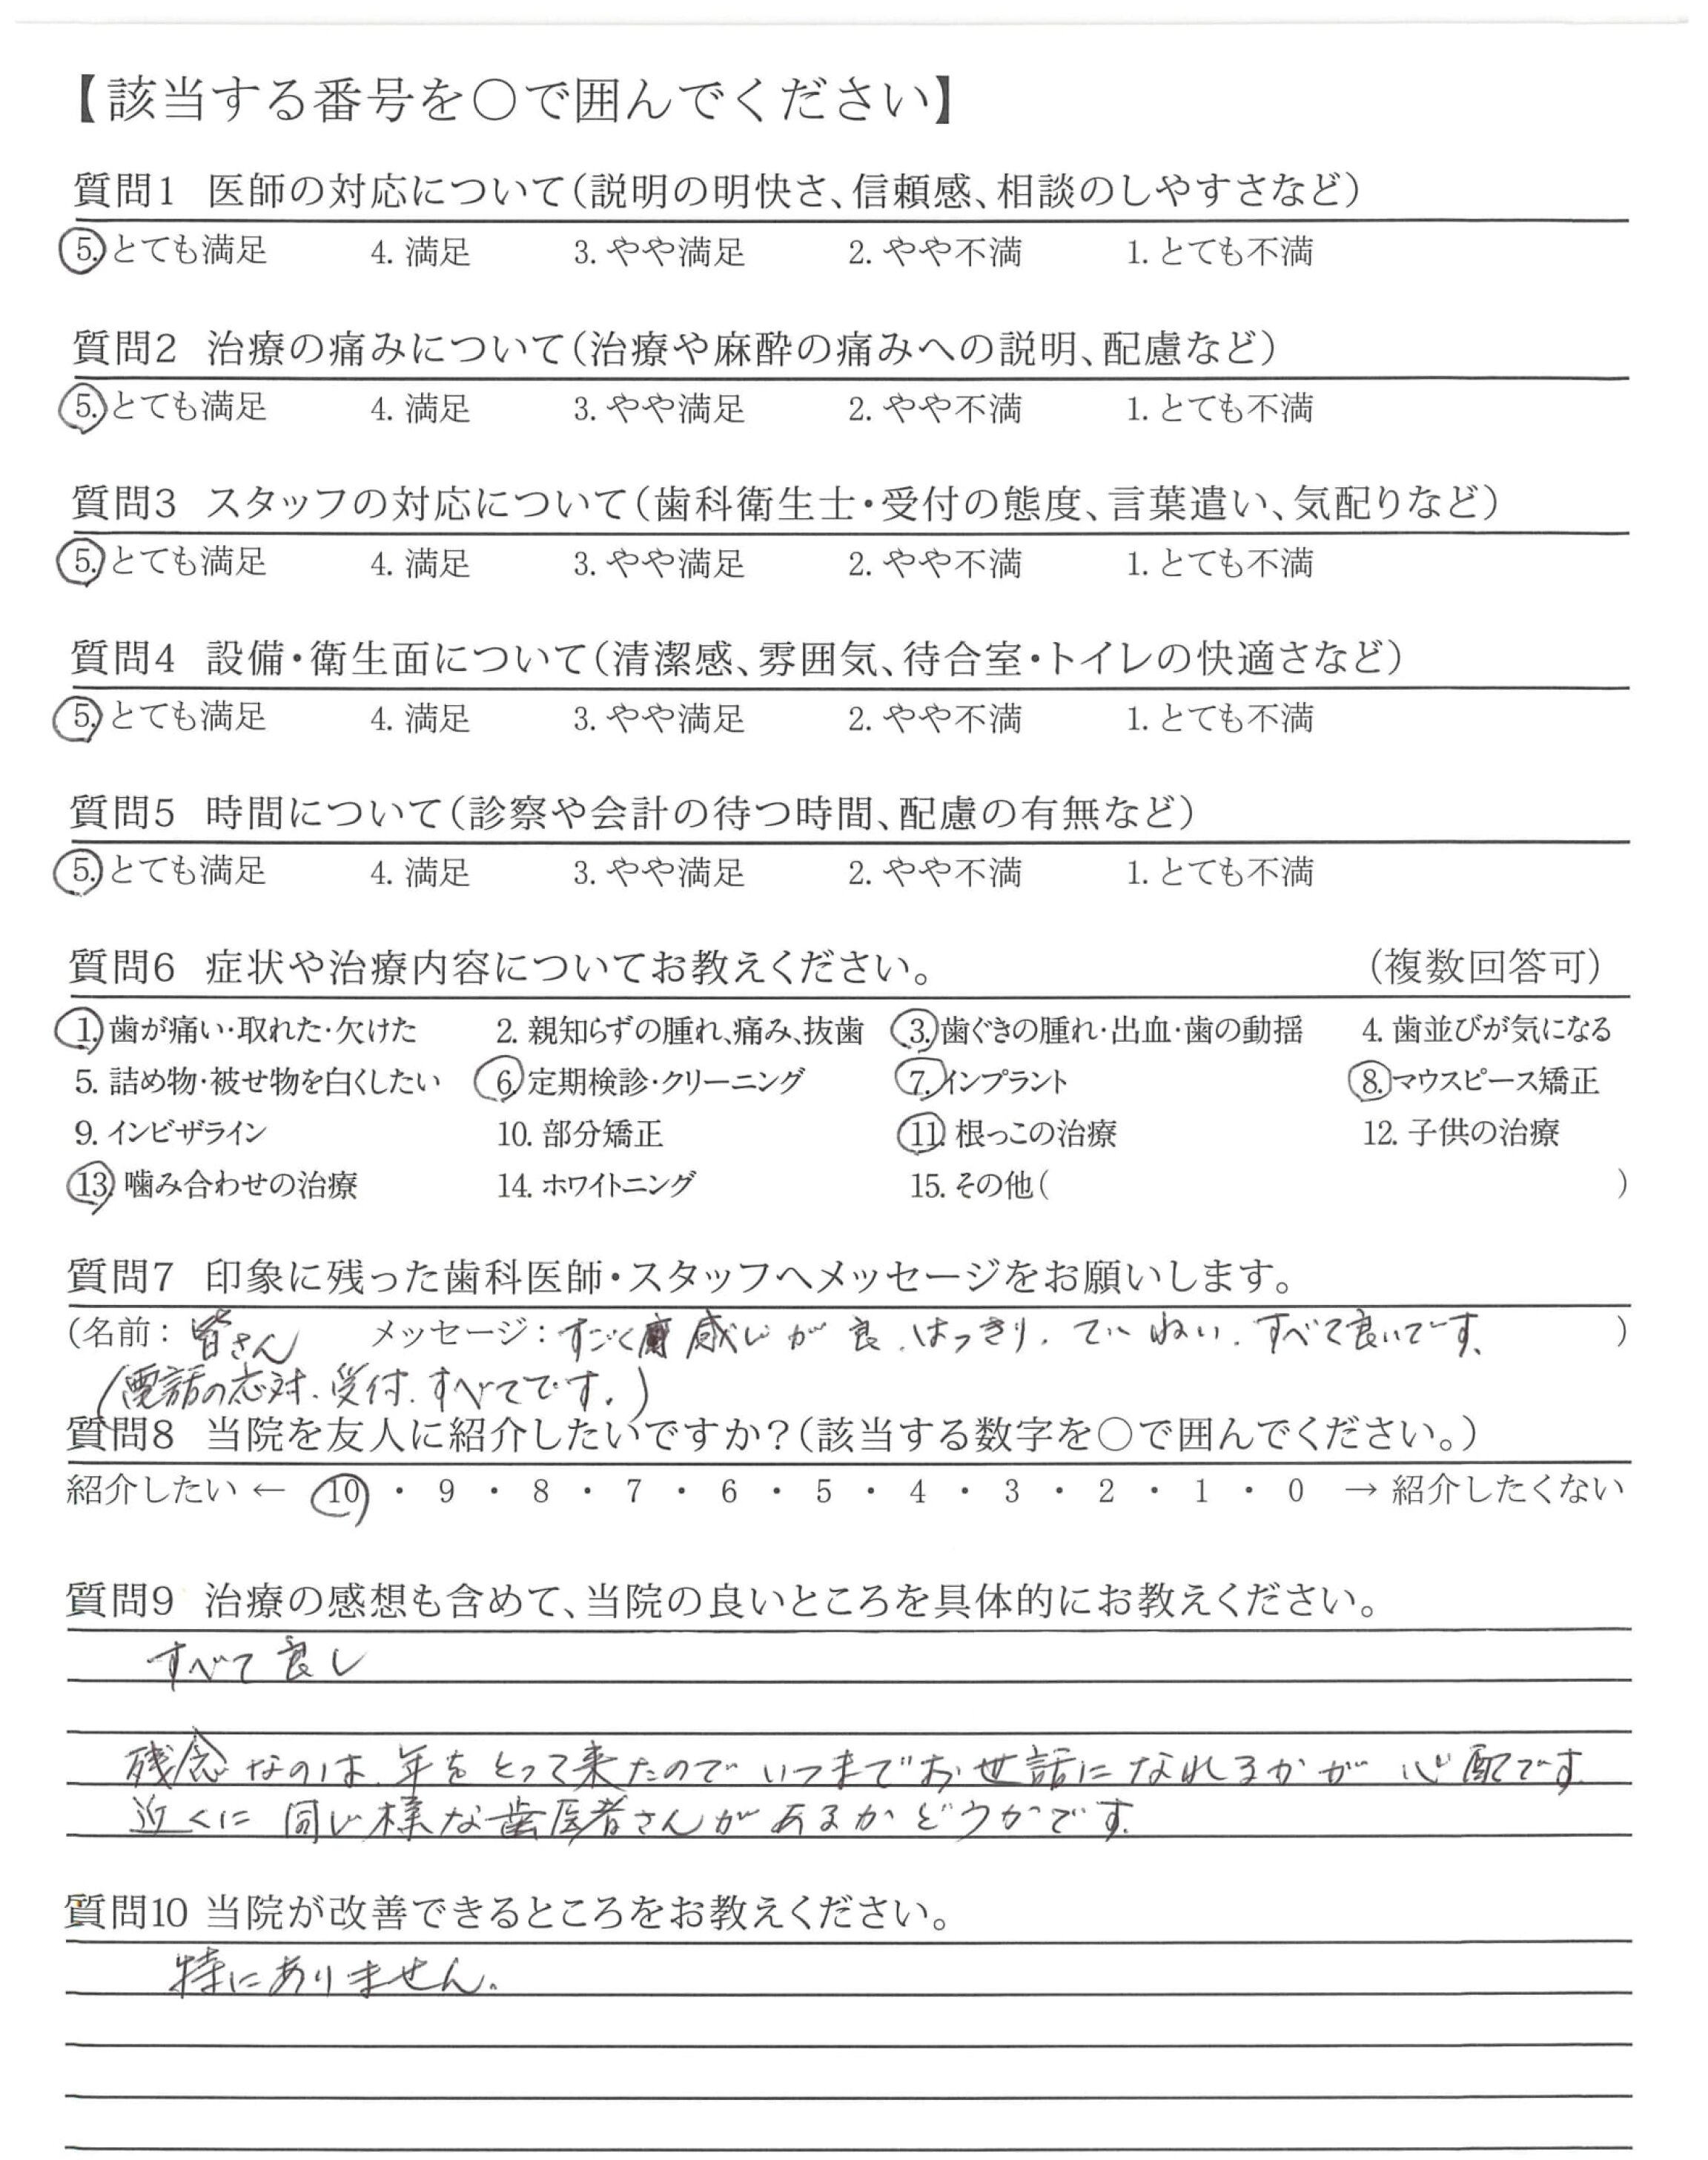 【該当する番号を○で囲んでください】
質問1 医師の対応について(説明の明快さ、信頼感、相談のしやすさなど)
5. とても満足 4. 満足 3. やや満足 2. やや不満 1. とても不満
質問2 治療の痛みについて(治療や麻酔の痛みへの説明、配慮など)
5. とても満足 4. 満足 3. やや満足 2. やや不満 1. とても不満
質問3 スタッフの対応について(歯科衛生士・受付の態度、言葉遣い、気配りなど)
5. とても満足 4. 満足 3. やや満足 2. やや不満 1. とても不満
質問4 設備・衛生面について(清潔感、雰囲気、待合室・トイレの快適さなど)
5. とても満足 4. 満足 3. やや満足 2. やや不満 1. とても不満
質問5 時間について(診察や会計の待つ時間、配慮の有無など)
5. とても満足 4. 満足 3. やや満足 2. やや不満 1. とても不満
質問6 症状や治療内容についてお教えください。 (複数回答可)
1. 歯が痛い・取れた・欠けた 2. 親知らずの腫れ、痛み、抜歯 3. 歯ぐきの腫れ・出血・歯の動揺 4. 歯並びが気になる
5. 詰め物・被せ物を白くしたい 6. 定期検診・クリーニング 7. インプラント 8. マウスピース矯正
9. インビザライン 10. 部分矯正 11. 根っこの治療 12. 子供の治療
13. 噛み合わせの治療 14. ホワイトニング 15. その他( )
質問7 印象に残った歯科医師・スタッフへメッセージをお願いします。
(名前: 皆さん メッセージ: すごく感じが良、はっきり、ていねい、すべて良いです、 )
(電話の応対、受付、すべてです。)
質問8 当院を友人に紹介したいですか?(該当する数字を○で囲んでください。)
紹介したい ← 10 ・ 9 ・ 8 ・ 7 ・ 6 ・ 5 ・ 4 ・ 3 ・ 2 ・ 1 ・ 0 → 紹介したくない
質問9 治療の感想も含めて、当院の良いところを具体的にお教えください。
すべて良し
残念なのは、年をとって来たのでいつまでお世話になれるかが心配です
近くに同じ様な歯医者さんがあるかどうかです。
質問10 当院が改善できるところをお教えください。
特にありません。